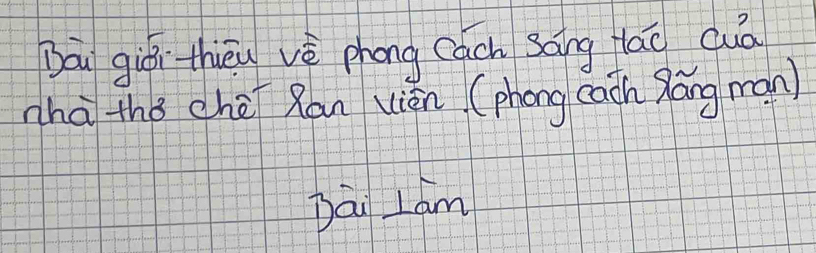 Bài giới thiệu về phong cách sáng tác của
nhà thơ chế Lan Viên. (phong cách lãng mạn)
Bài Làm